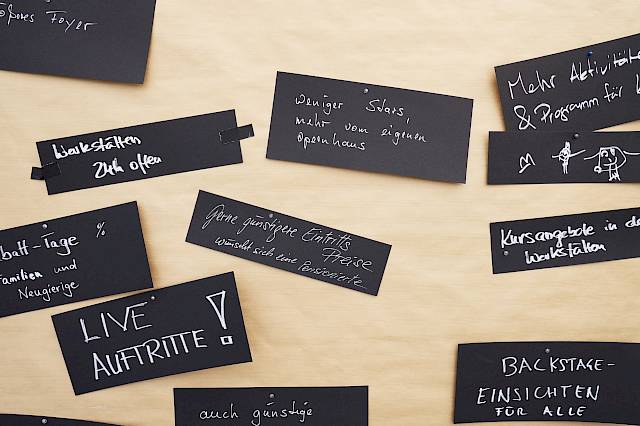 Foyer
weniger Stars,
mehr vom eigenen
Opernhaus
Mehr Aktivitäte
& Programm für
Werkstätten
24h offen
Gerne günstigere Eintritts
Preise
wünscht sich eine Pensionierte
Kursangebote in de
Werkstätten
batt-Tage %
Familien und
Neugierige
LIVE
AUFTRITTE!
BACKSTAGE-
EINSICHTEN
FÜR ALLE
auch günstige